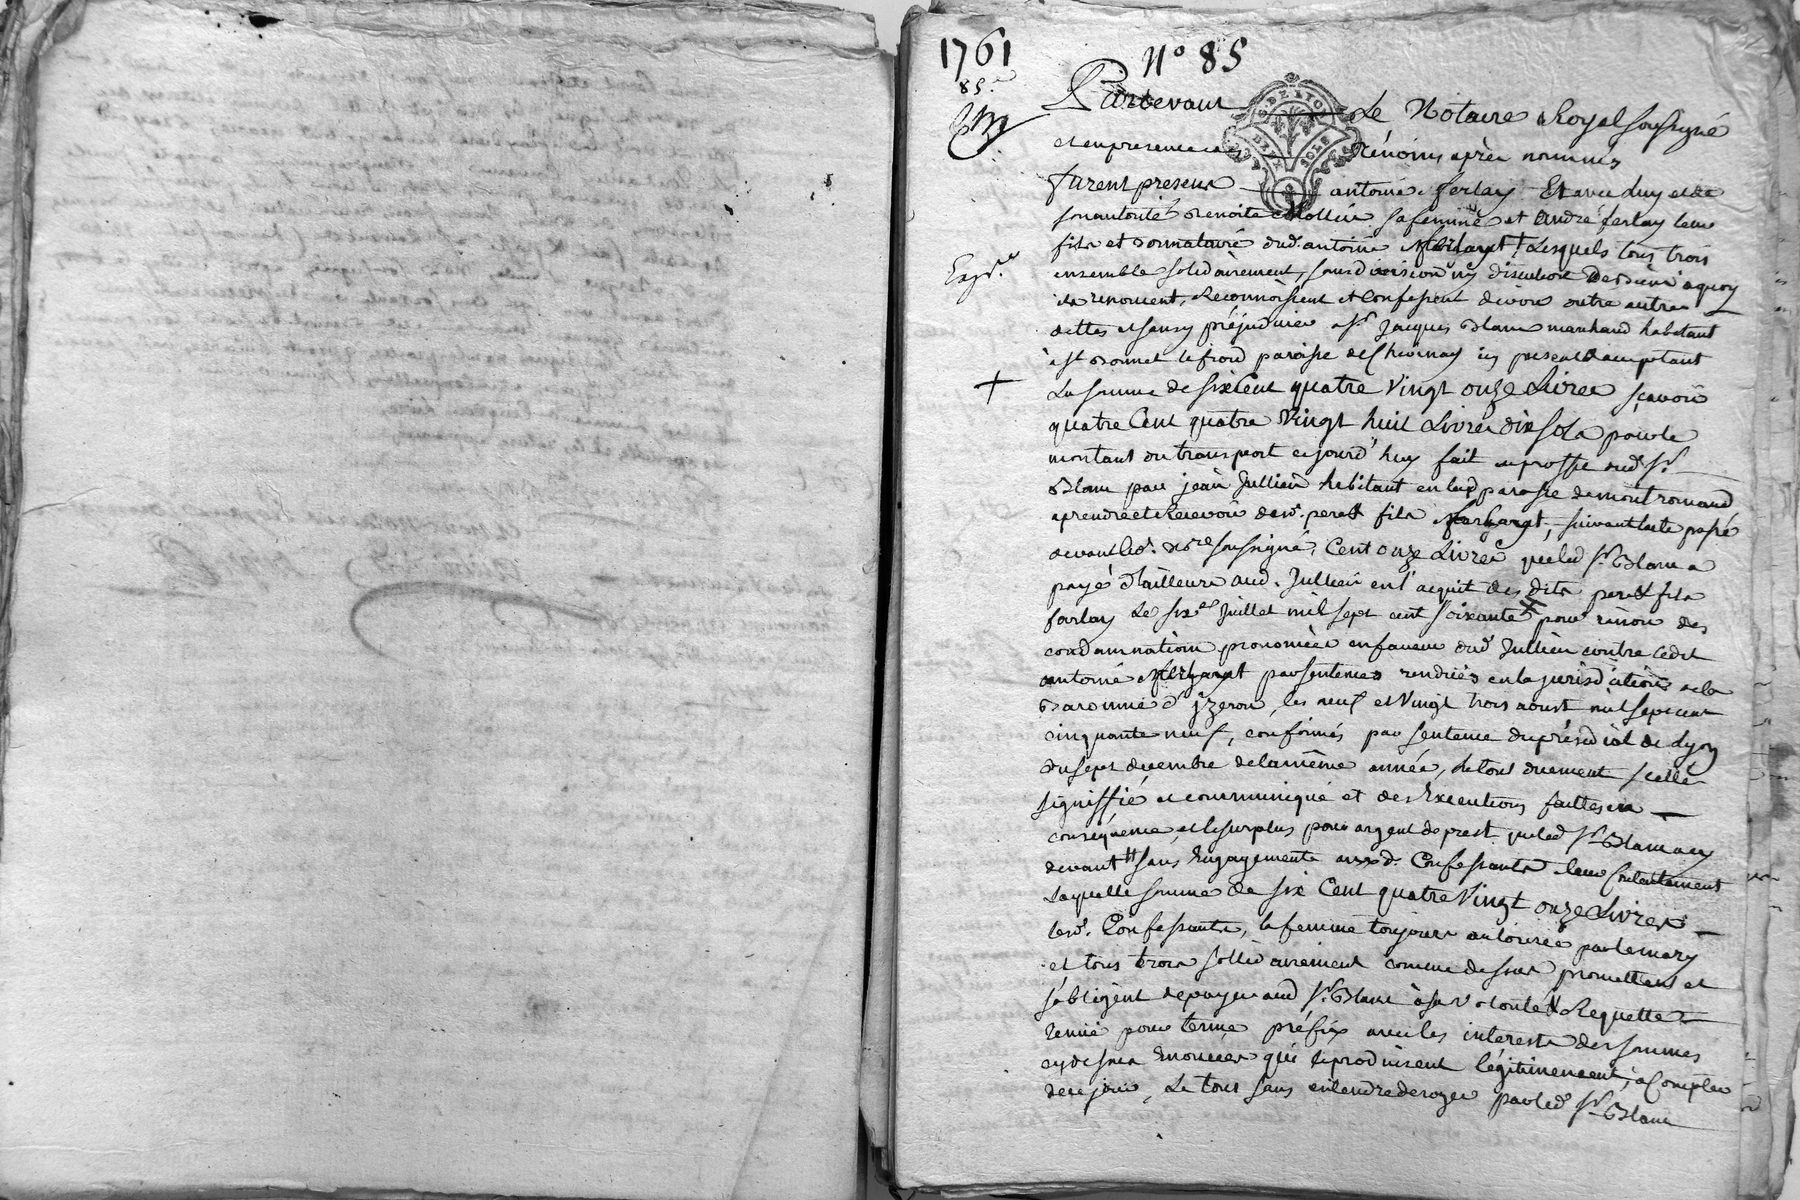 1761
N° 85
85.e
G. DE LYON
DEUX SOLS
Pardevant Le Notaire Royal soussigné
et en presence des témoins après nommés
furent present antoine ferlay Et avec luy et de
son autorité Benoite Mollin sa femme et André ferlay leur
fils et donnataire dud. antoine Lesquels tous trois
ensemble solidairement, sans division ny discution de biens à quoy
ils renoncent, Reconnoissent et Confessent devoir outre autres
dettes et sans y préjudicier a Sr. Jacques Blanc marchand habitant
à St Bonnet le froid paroisse de Chevinay icy present acceptant
La somme de six Cent quatre Vingt onze Livres sçavoir
quatre Cent quatre Vingt huit Livres dix sols pour le
montant du transport cejourd'huy fait au proffit dud. Sr.
Blanc par jean Jullien habitant en lad. paroisse de montromand
a prendre et Recevoir desd. pere et fils suivant l'acte passé
devant led. no.re soussigné, Cent onze Livres que led. Sr. Blanc a
payé d'ailleurs aud. Jullien en l'acquit des dits pere et fils
farlay Le six.e Juillet mil sept cent soixante pour raison des
condamnations prononcées en faveur dud. Jullien contre ledit
antoine par sentences rendües en la jurisdiction de la
Baronnie d'jzeron, les neuf et Vingt trois aoust mil sept cent
cinquante neuf, confirmés par sentence du présidial de Lyon
du sept decembre de la même année, le tout duement scellé
signiffié et communiqué et des Executions faittes en
conséquence, et le surplus pour argent de prest que led. Sr. Blanc a cy
devant sans Engagements auxd. Confessants a leur Contentement
Laquelle somme de six Cent quatre Vingt onze Livres
lesd. Confessants, la femme toujours autorisée par le mary
et tous trois sollidairement comme dessus promettent et
s'obligent de payer aud. Sr. Blanc à sa volonté & Requette
pour terme préfix avec les interests des sommes
cy dessus Enoncées qui se produisent légitimement, à Compter
de ce jour, Le tout sans entendre deroger par led. Sr. Blanc